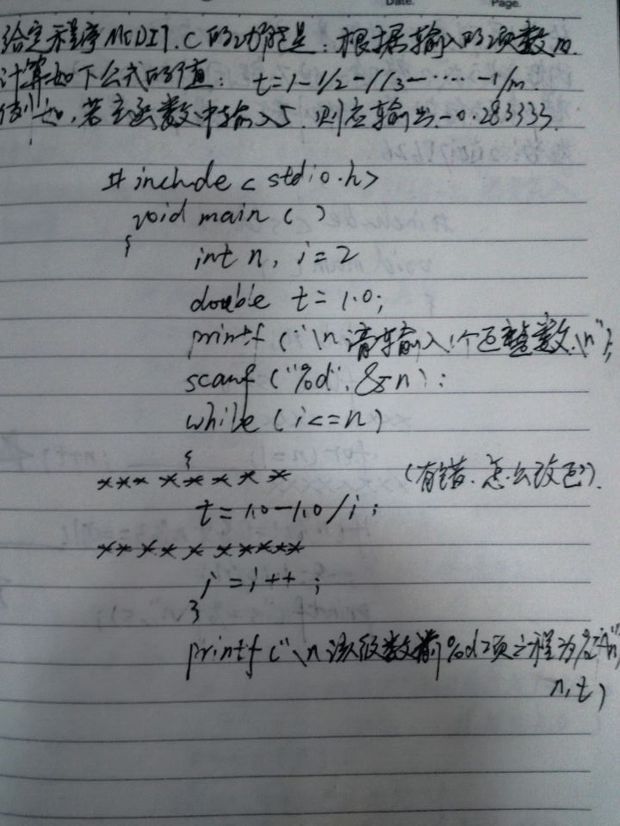 Date. Page.
给定程序MODI7.C的功能是:根据输入的项数m.
计算如下公式的值: t=1-1/2-1/3-……-1/m.
例如,若主函数中输入5.则应输出-0.283333.
#include<stdio.h>
void main()
{
int n, i=2
double t=1.0;
printf("\n请输入1个正整数.\n");
scanf("%d".&n);
while(i<=n)
{
*** * * * * * (有错.怎么改正?).
t=1.0-1.0/i;
** * * * * * * * *
i=i++;
}
printf("\n该级数前%d项之
n,t)